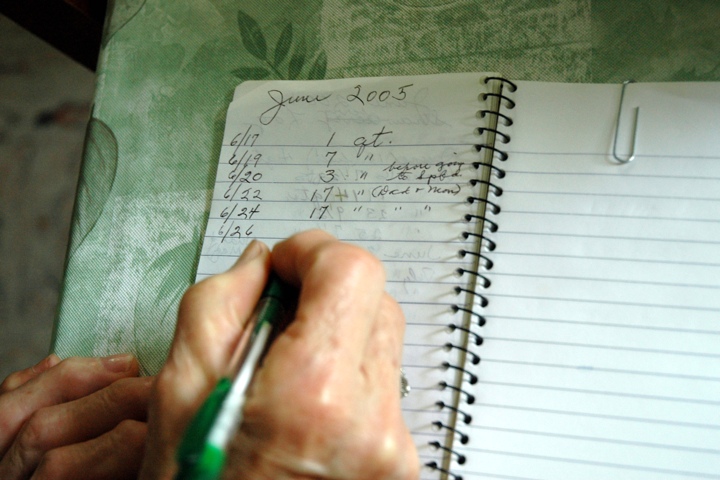 June 2005
6/17 1 qt.
6/19 7 " before going
6/20 3 " to
6/22 17 " (Dick + Mom)
6/24 17 " " "
6/26